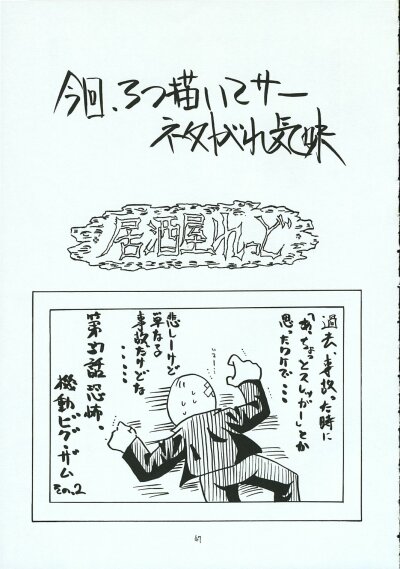 今回、3つ描いてサー
ネタがれ気味
居酒屋れっど
過去、事故った時に
「あ、ちょっとスレッガー」とか
思ったワケで・・・
悲しーけど
単なる
事故だけどな
・・・・・
第37話 恐怖、
機動ビグ・ザム
その2
67